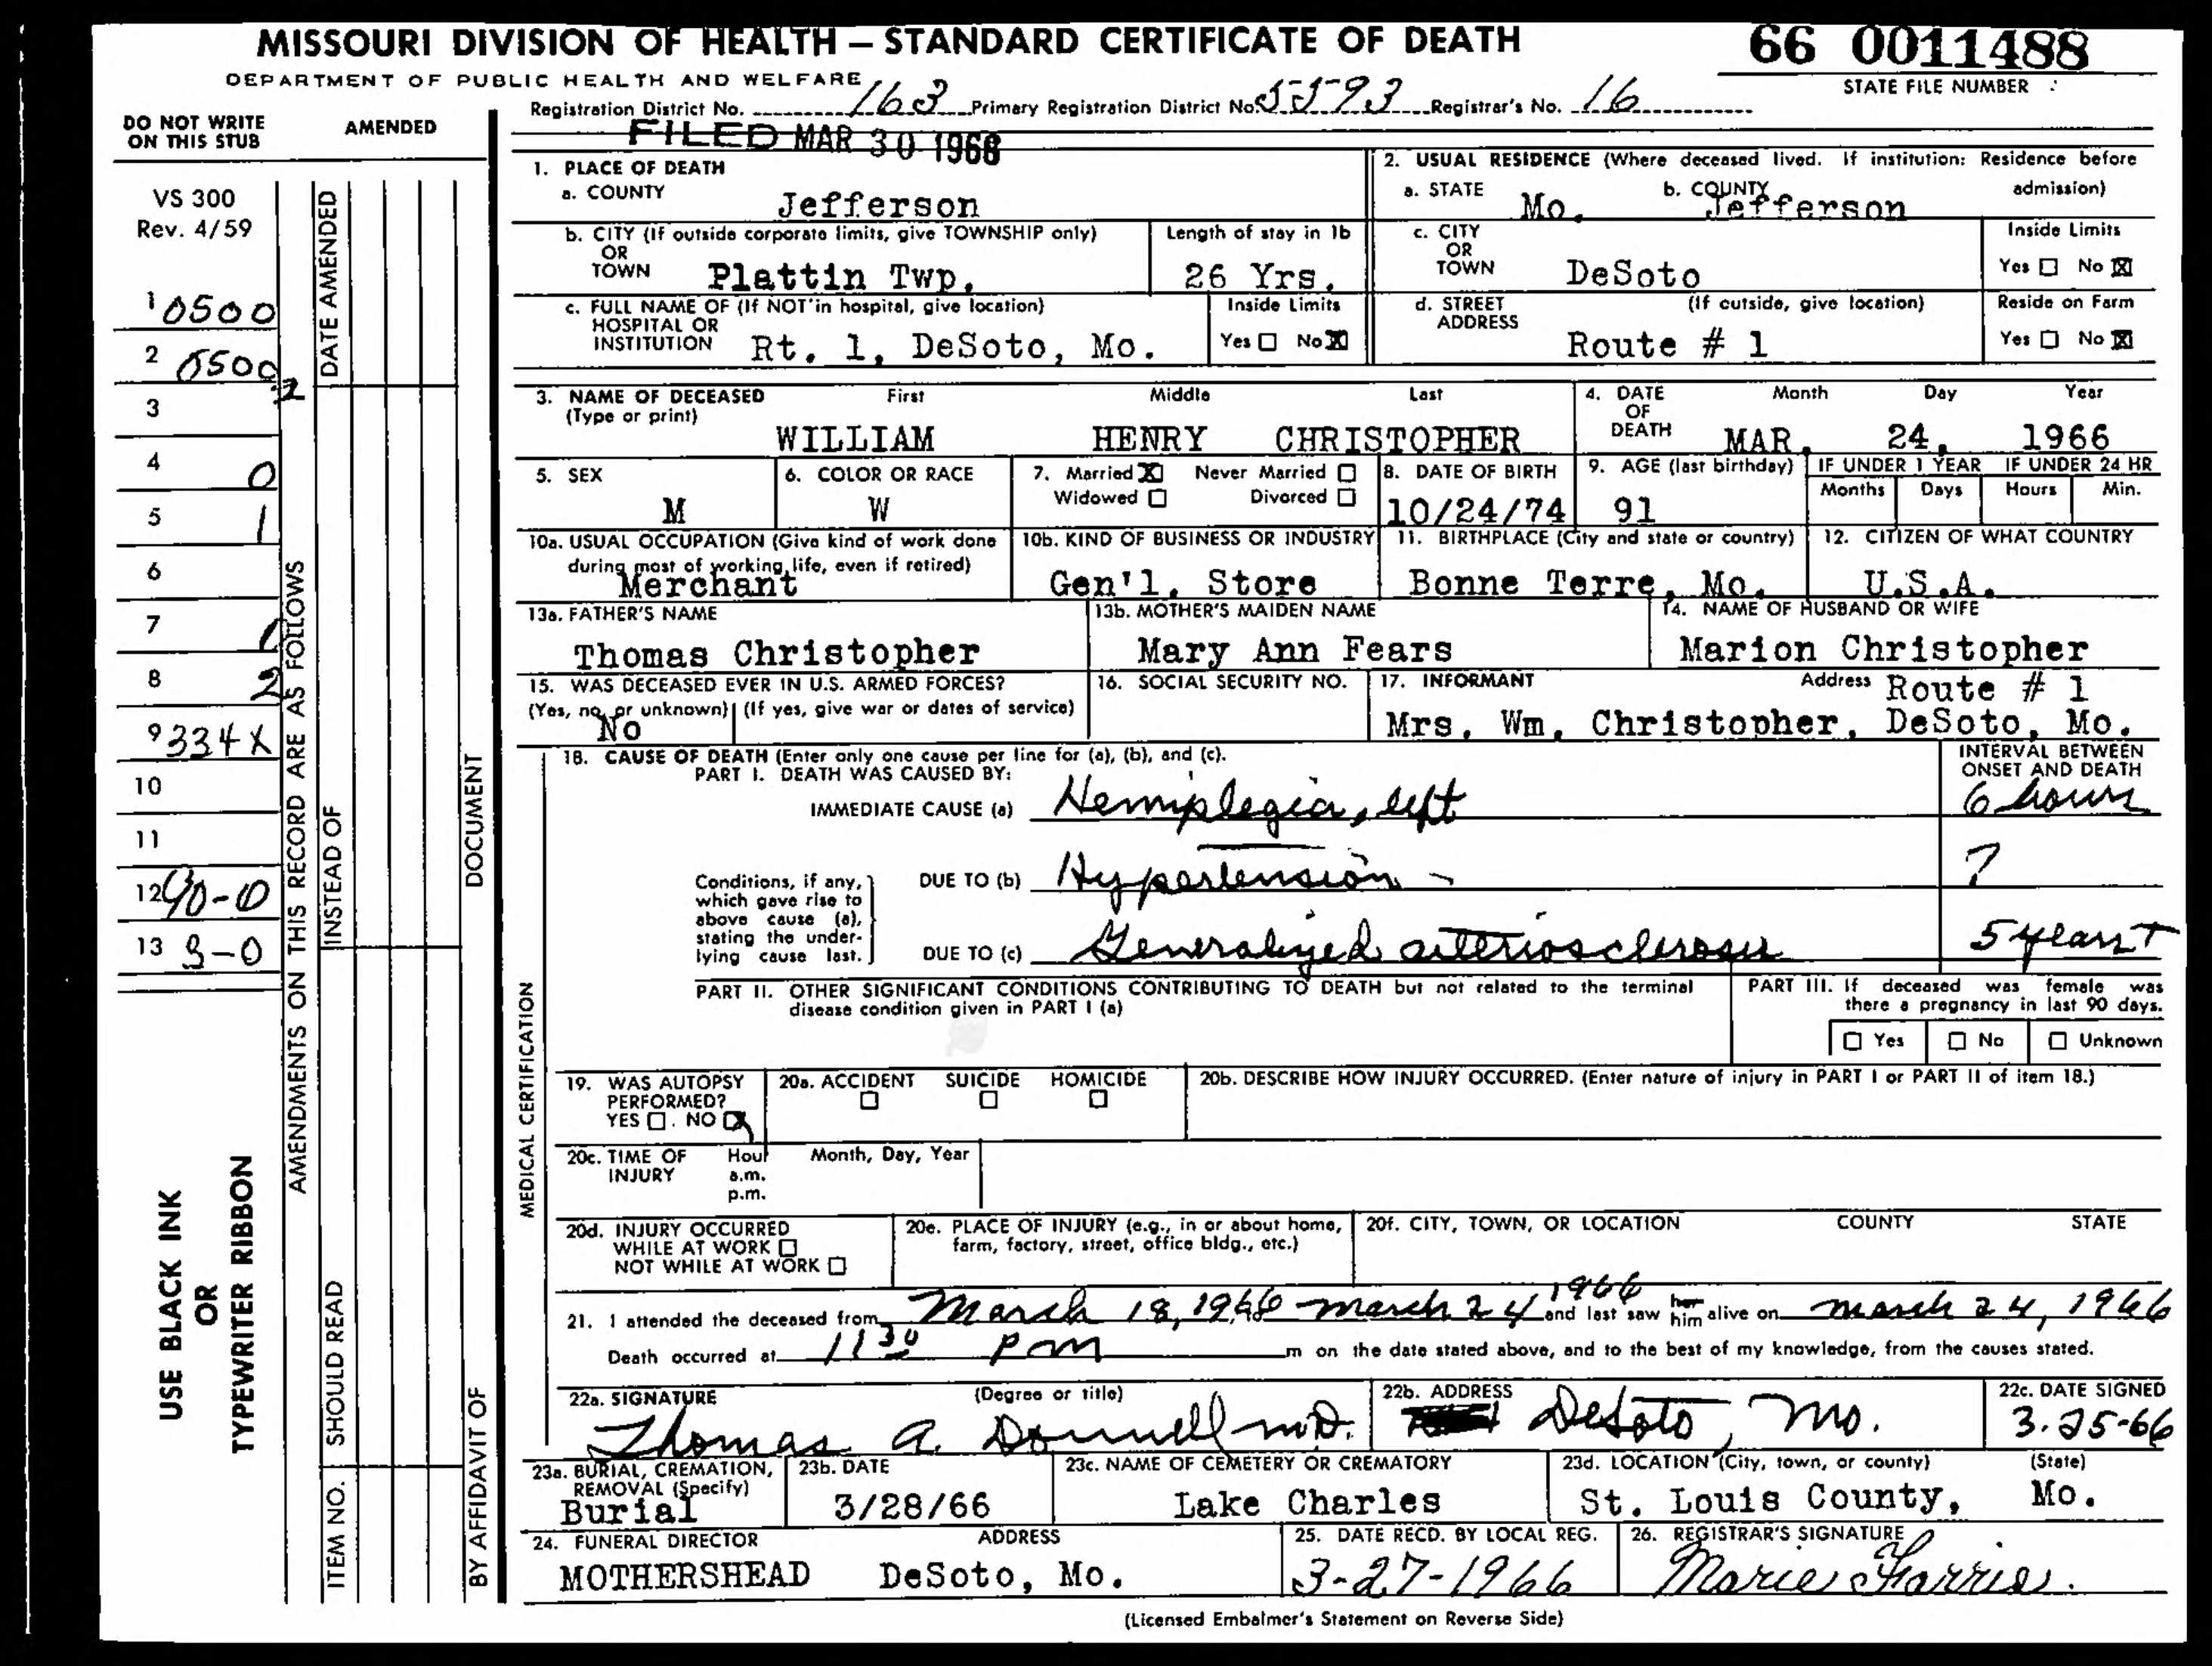 MISSOURI DIVISION OF HEALTH — STANDARD CERTIFICATE OF DEATH
66 0011488
DEPARTMENT OF PUBLIC HEALTH AND WELFARE
STATE FILE NUMBER
Registration District No. 163 Primary Registration District No. 5593 Registrar's No. 16
DO NOT WRITE ON THIS STUB
AMENDED
FILED MAR 30 1966
VS 300
Rev. 4/59
1 0500
2 0500
2
3
4 0
5 1
6
7 1
8 2
9 334X
10
11
12 90-0
13 3-0
USE BLACK INK
OR
TYPEWRITER RIBBON
AMENDMENTS ON THIS RECORD ARE AS FOLLOWS
DATE AMENDED
INSTEAD OF
SHOULD READ
ITEM NO.
DOCUMENT
BY AFFIDAVIT OF
1. PLACE OF DEATH
a. COUNTY
Jefferson
2. USUAL RESIDENCE (Where deceased lived. If institution: Residence before admission)
a. STATE Mo. b. COUNTY Jefferson
b. CITY (If outside corporate limits, give TOWNSHIP only)
OR
TOWN Plattin Twp.
Length of stay in 1b
26 Yrs.
c. CITY
OR
TOWN DeSoto
Inside Limits
Yes ☐ No ☒
c. FULL NAME OF (If NOT in hospital, give location)
HOSPITAL OR
INSTITUTION Rt. 1, DeSoto, Mo.
Inside Limits
Yes ☐ No ☒
d. STREET (If outside, give location)
ADDRESS
Route # 1
Reside on Farm
Yes ☐ No ☒
3. NAME OF DECEASED First Middle Last
(Type or print)
WILLIAM HENRY CHRISTOPHER
4. DATE OF DEATH Month Day Year
MAR. 24, 1966
5. SEX
M
6. COLOR OR RACE
W
7. Married ☒ Never Married ☐
Widowed ☐ Divorced ☐
8. DATE OF BIRTH
10/24/74
9. AGE (last birthday)
91
IF UNDER 1 YEAR IF UNDER 24 HR
Months Days Hours Min.
10a. USUAL OCCUPATION (Give kind of work done
during most of working life, even if retired)
Merchant
10b. KIND OF BUSINESS OR INDUSTRY
Gen'l. Store
11. BIRTHPLACE (City and state or country)
Bonne Terre, Mo.
12. CITIZEN OF WHAT COUNTRY
U.S.A.
13a. FATHER'S NAME
Thomas Christopher
13b. MOTHER'S MAIDEN NAME
Mary Ann Fears
14. NAME OF HUSBAND OR WIFE
Marion Christopher
15. WAS DECEASED EVER IN U.S. ARMED FORCES?
(Yes, no, or unknown) (If yes, give war or dates of service)
No
16. SOCIAL SECURITY NO.
17. INFORMANT Address Route # 1
Mrs. Wm. Christopher, DeSoto, Mo.
MEDICAL CERTIFICATION
18. CAUSE OF DEATH (Enter only one cause per line for (a), (b), and (c).
PART I. DEATH WAS CAUSED BY:
INTERVAL BETWEEN
ONSET AND DEATH
IMMEDIATE CAUSE (a) Hemiplegia, left 6 hours
Conditions, if any,
which gave rise to
above cause (a),
stating the under-
lying cause last.
DUE TO (b) Hypertension ?
DUE TO (c) Generalized arteriosclerosis 5 years +
PART II. OTHER SIGNIFICANT CONDITIONS CONTRIBUTING TO DEATH but not related to the terminal
disease condition given in PART I (a)
PART III. If deceased was female was
there a pregnancy in last 90 days.
☐ Yes ☐ No ☐ Unknown
19. WAS AUTOPSY
PERFORMED?
YES ☐. NO ☒
20a. ACCIDENT SUICIDE HOMICIDE
☐ ☐ ☐
20b. DESCRIBE HOW INJURY OCCURRED. (Enter nature of injury in PART I or PART II of item 18.)
20c. TIME OF INJURY Hour a.m. p.m. Month, Day, Year
20d. INJURY OCCURRED
WHILE AT WORK ☐
NOT WHILE AT WORK ☐
20e. PLACE OF INJURY (e.g., in or about home,
farm, factory, street, office bldg., etc.)
20f. CITY, TOWN, OR LOCATION COUNTY STATE
21. I attended the deceased from March 18, 1966 - March 24 1966 and last saw her him alive on March 24, 1966
Death occurred at 11 30 P m m on the date stated above, and to the best of my knowledge, from the causes stated.
22a. SIGNATURE (Degree or title)
Thomas A. Donnell M.D.
22b. ADDRESS
DeSoto, Mo.
22c. DATE SIGNED
3-25-66
23a. BURIAL, CREMATION,
REMOVAL (Specify)
Burial
23b. DATE
3/28/66
23c. NAME OF CEMETERY OR CREMATORY
Lake Charles
23d. LOCATION (City, town, or county) (State)
St. Louis County, Mo.
24. FUNERAL DIRECTOR ADDRESS
MOTHERSHEAD DeSoto, Mo.
25. DATE RECD. BY LOCAL REG.
3-27-1966
26. REGISTRAR'S SIGNATURE
Marie Harris.
(Licensed Embalmer's Statement on Reverse Side)